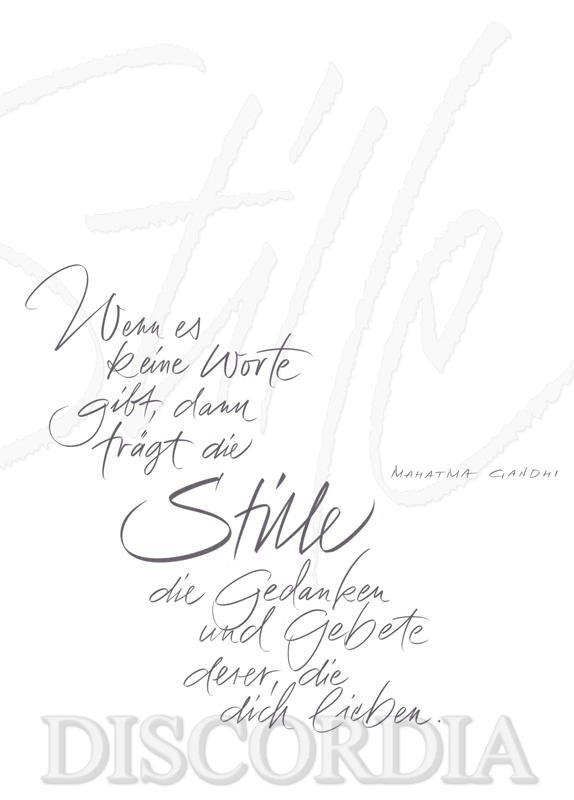 Stille
Wenn es
keine Worte
gibt, dann
trägt die
MAHATMA GANDHI
Stille
die Gedanken
und Gebete
derer, die
dich lieben.
DISCORDIA